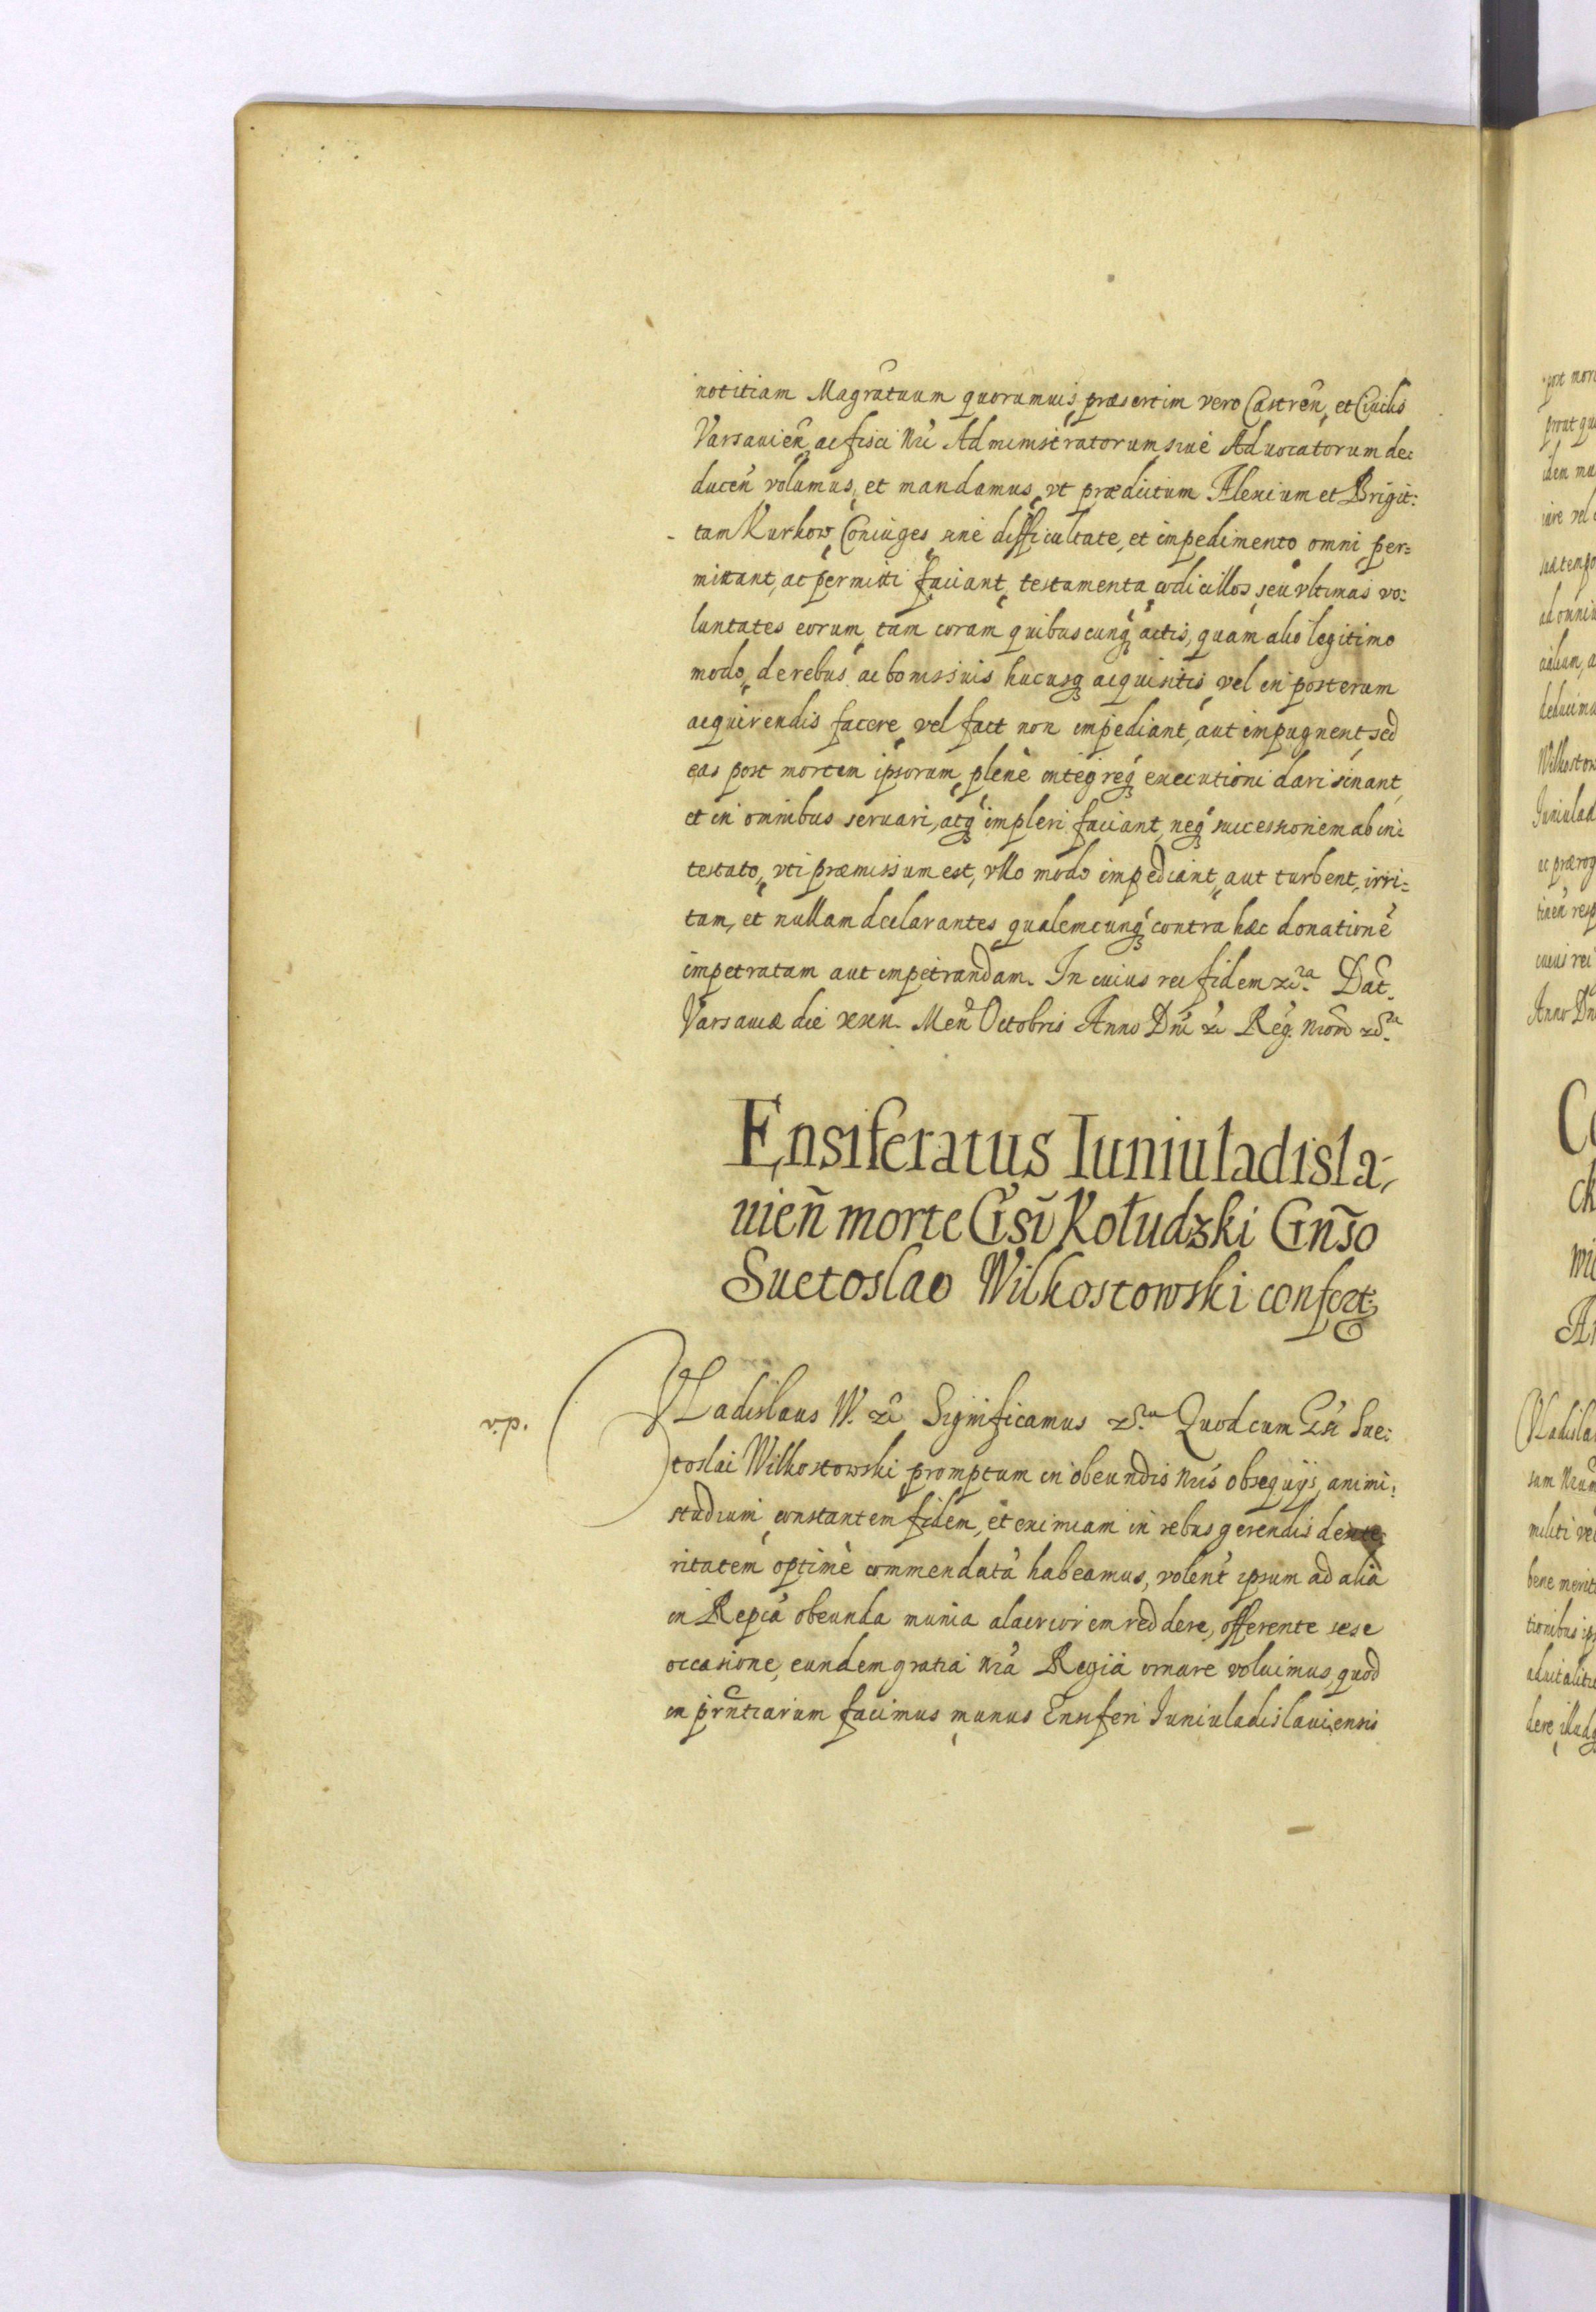 notitiam Magrãtuum quorumuis præsertim vero Castreñ, et Ciuilis
Varsauieñ ac fisci Nri Administratorum siue Aduocatorum de:
duceñ volumus, et mandamus, vt prædictum Alexium et Brigit:
tam Kurkow Coniuges sine difficultate, et impedimento omni per=
mittant, ac permitti faciant, testamenta codicillos, seu vltimas vo:
luntates eorum, tam coram quibuscunq actis, quam alio legitimo
modo, de rebus ac bonis suis hucusq acquisitis, vel in posterum
acquirendis facere, vel fact non impediant, aut impugnent, sed
eas post mortem ipsorum plenè integreq executioni dari sinant,
et in omnibus seruari, atq impleri faciant, neq successionem ab in:
testato, vti præmissum est, vllo modo impediant, aut turbent, irri=
tam, et nullam declarantes qualemcunq contra hæc donationẽ
impetratam aut impetrandam. In cuius rei fidem etc. Dat.
Varsauiæ die xxx. Meñ Octobris Anno Dni etc Reg. Nrorũ etc.
Ensiferatus Iuniuladisla-
uieñ morte Gsi Kołudzki Gñso
Suetoslao Wilkostowski confert.
VLadislaus IV. etc Significamus etc. Quod cum Gsi Sue:
toslai Wilkostowski promptum in obeundis Nris obsequijs, animi
studium, constantem fidem, et eximiam in rebus gerendis dexte
ritatem optimè commendatã habeamus, volent ipsum ad alia
in Repca obeunda munia alacriorem reddere, offerente sese
occasione, eundem gratia Nra Regia ornare voluimus, quod
in prñtiarum facimus munus Ensiferi Iuniuladislauiensis